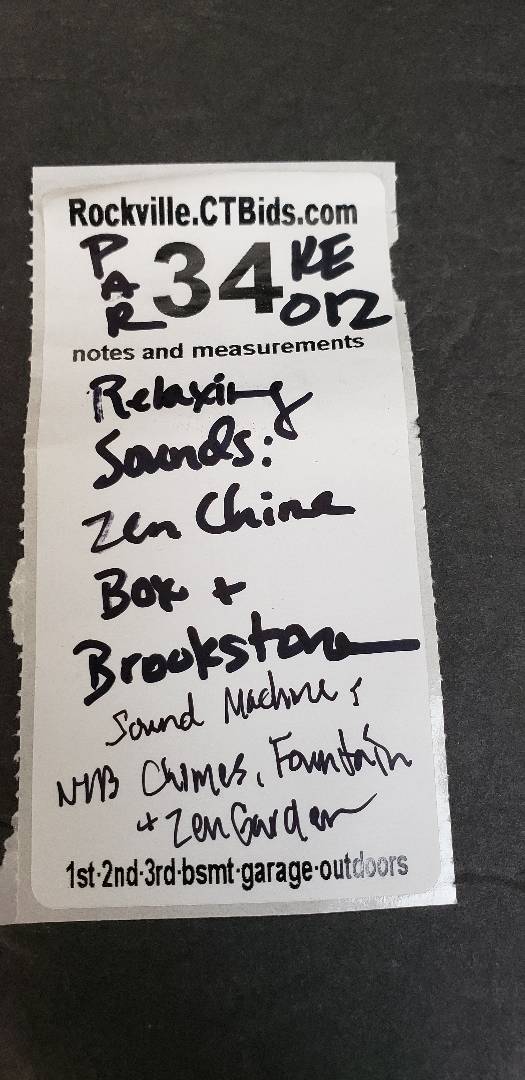 Rockville.CTBids.com
PAR 34 KE
012
notes and measurements
Relaxing
Sounds:
Zen Chime
Box +
Brookstone
Sound Machine &
NIB Chimes, Fountain
+ Zen Garden
1st·2nd·3rd·bsmt·garage·outdoors